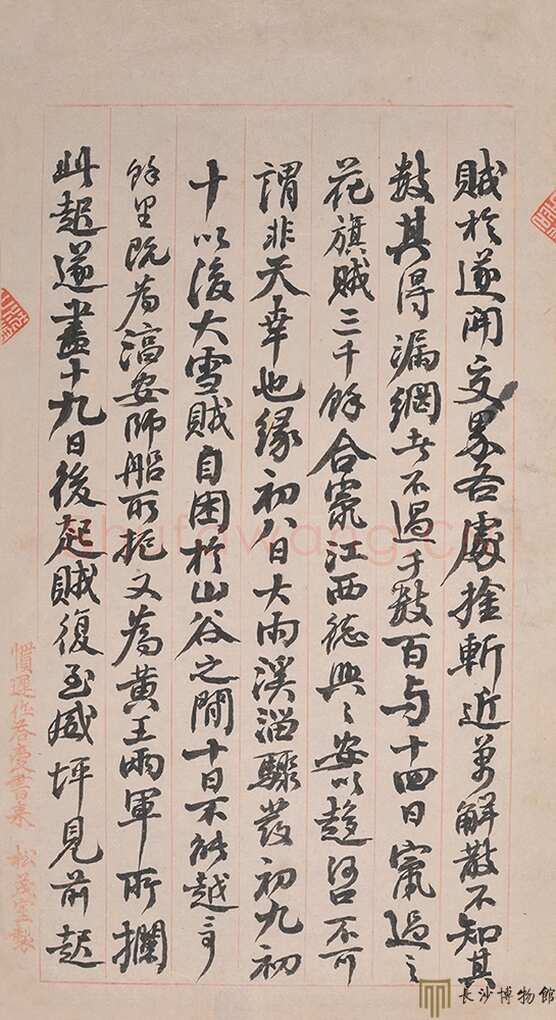 賊於遂開交界各處擒斬近萬解散不知其
數其得漏網者不過千數百与十四日竄過之
花旗賊三千餘合竄江西德興々安以趨河口不可
謂非天幸也緣初八日大雨溪淄驟發初九初
十以後大雪賊自困於山谷之間十日不能越
餘里既為濠安師船所扼又為黃王兩軍所攔
此起遂盡十九日後起賊復至臧坪見前起
慣遲作答愛書來 松茂室製
長沙博物館